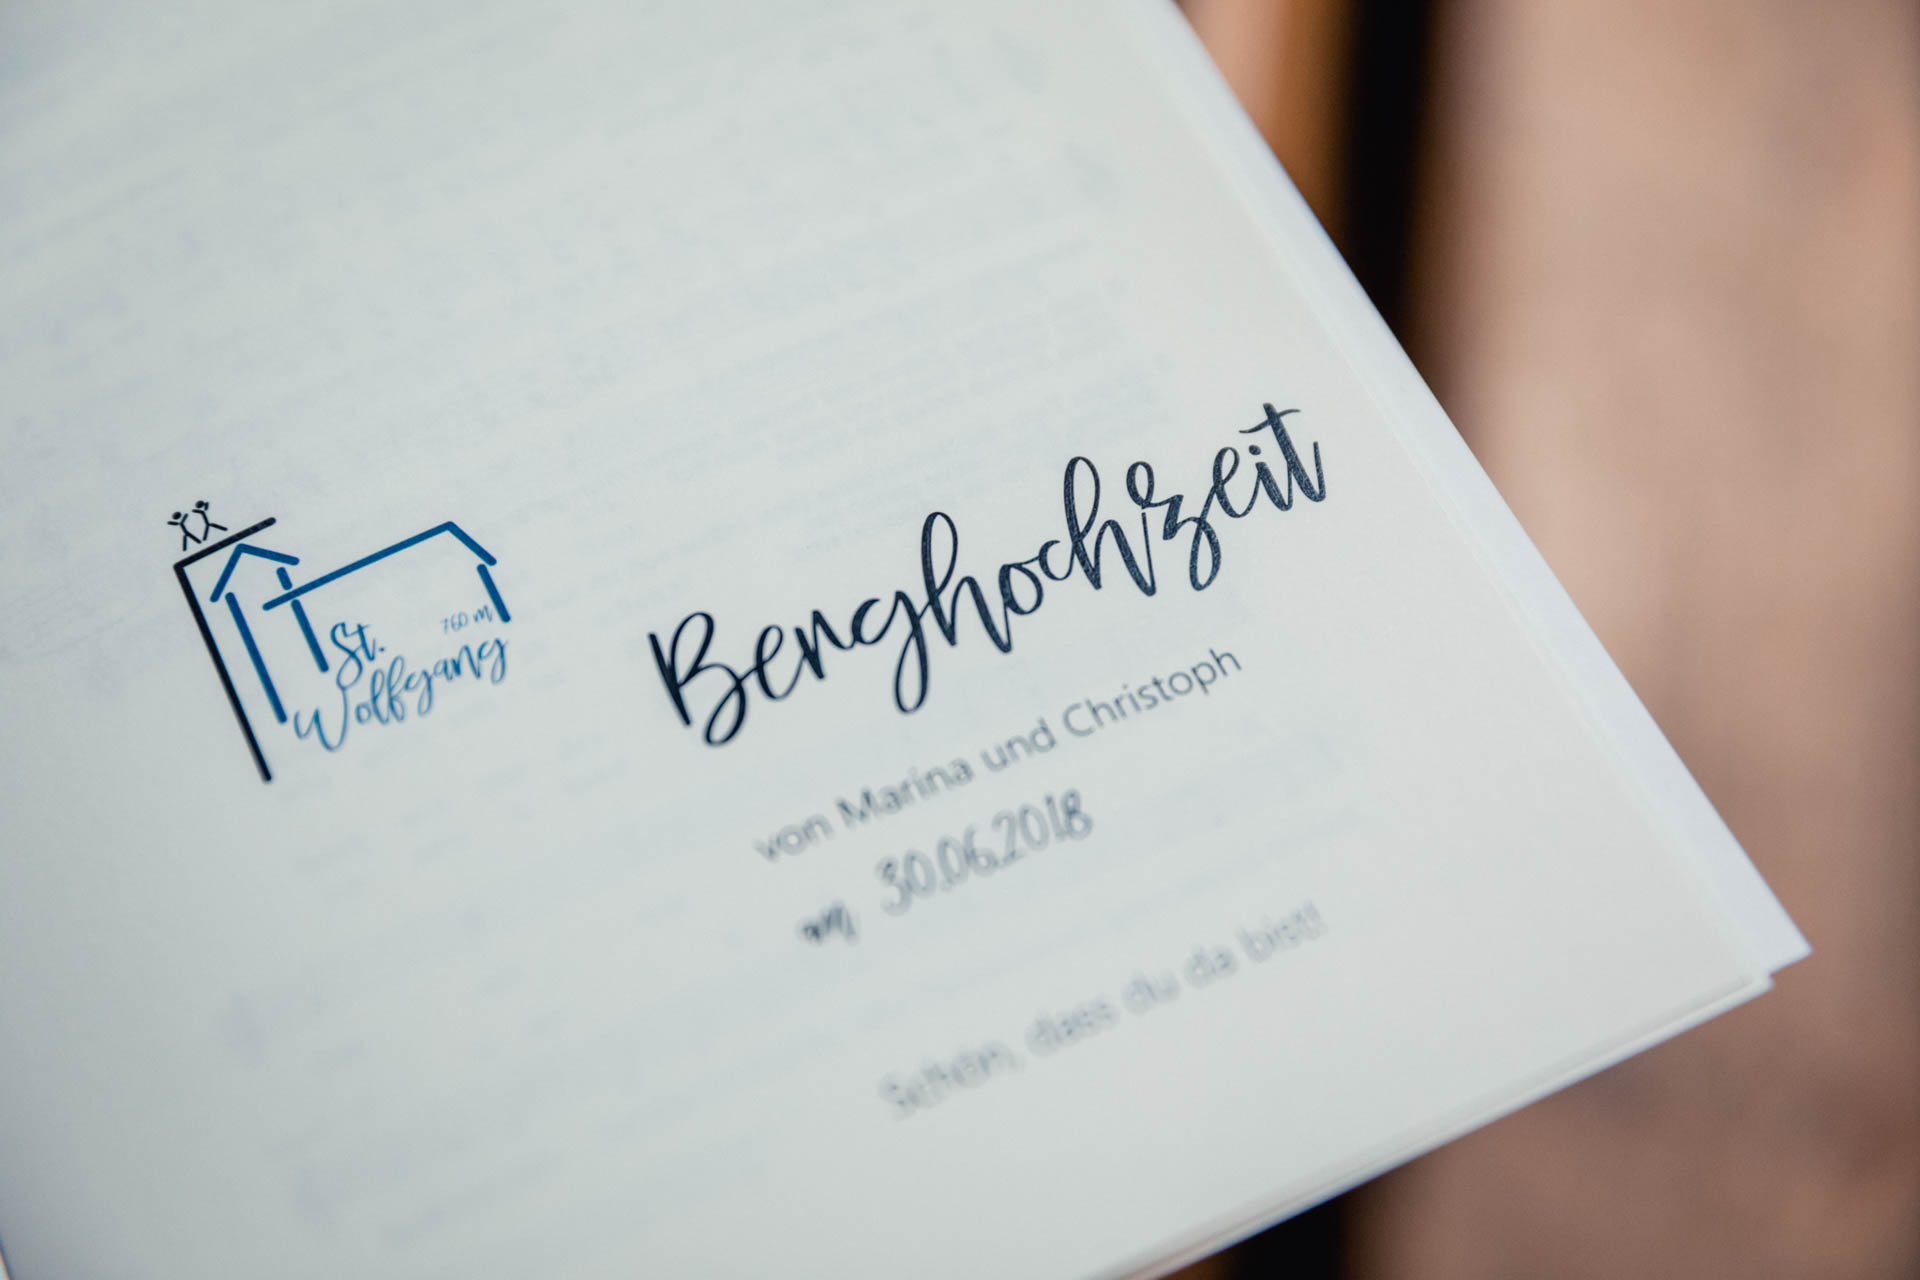 760 m
St.
Wolfgang
Berghochzeit
von Marina und Christoph
am 30.06.2018
Schön, dass du da bist!